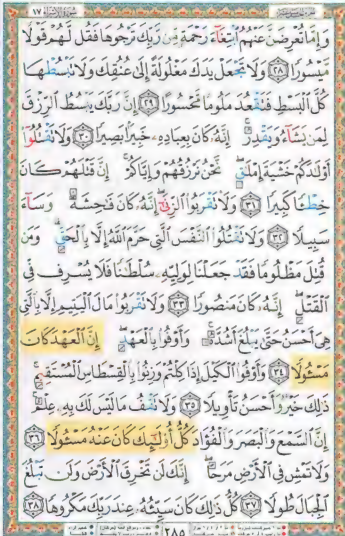 وَإِمَّا تُعْرِضَنَّ عَنْهُمُ ٱبْتِغَآءَ رَحْمَةٍ مِّن رَّبِّكَ تَرْجُوهَا فَقُل لَّهُمْ قَوْلًا
مَّيْسُورًا ٢٨ وَلَا تَجْعَلْ يَدَكَ مَغْلُولَةً إِلَىٰ عُنُقِكَ وَلَا تَبْسُطْهَا
كُلَّ ٱلْبَسْطِ فَتَقْعُدَ مَلُومًا مَّحْسُورًا ٢٩ إِنَّ رَبَّكَ يَبْسُطُ ٱلرِّزْقَ
لِمَن يَشَآءُ وَيَقْدِرُ إِنَّهُۥ كَانَ بِعِبَادِهِۦ خَبِيرًۢا بَصِيرًا ٣٠ وَلَا تَقْتُلُوٓا۟
أَوْلَٰدَكُمْ خَشْيَةَ إِمْلَٰقٍ نَّحْنُ نَرْزُقُهُمْ وَإِيَّاكُمْ إِنَّ قَتْلَهُمْ كَانَ
خِطْـًٔا كَبِيرًا ٣١ وَلَا تَقْرَبُوا۟ ٱلزِّنَىٰٓ إِنَّهُۥ كَانَ فَٰحِشَةً وَسَآءَ
سَبِيلًا ٣٢ وَلَا تَقْتُلُوا۟ ٱلنَّفْسَ ٱلَّتِى حَرَّمَ ٱللَّهُ إِلَّا بِٱلْحَقِّ وَمَن
قُتِلَ مَظْلُومًا فَقَدْ جَعَلْنَا لِوَلِيِّهِۦ سُلْطَٰنًا فَلَا يُسْرِف فِّى
ٱلْقَتْلِ إِنَّهُۥ كَانَ مَنصُورًا ٣٣ وَلَا تَقْرَبُوا۟ مَالَ ٱلْيَتِيمِ إِلَّا بِٱلَّتِى
هِىَ أَحْسَنُ حَتَّىٰ يَبْلُغَ أَشُدَّهُۥ وَأَوْفُوا۟ بِٱلْعَهْدِ إِنَّ ٱلْعَهْدَ كَانَ
مَسْـُٔولًا ٣٤ وَأَوْفُوا۟ ٱلْكَيْلَ إِذَا كِلْتُمْ وَزِنُوا۟ بِٱلْقِسْطَاسِ ٱلْمُسْتَقِيمِ
ذَٰلِكَ خَيْرٌ وَأَحْسَنُ تَأْوِيلًا ٣٥ وَلَا تَقْفُ مَا لَيْسَ لَكَ بِهِۦ عِلْمٌ
إِنَّ ٱلسَّمْعَ وَٱلْبَصَرَ وَٱلْفُؤَادَ كُلُّ أُو۟لَٰٓئِكَ كَانَ عَنْهُ مَسْـُٔولًا ٣٦
وَلَا تَمْشِ فِى ٱلْأَرْضِ مَرَحًا إِنَّكَ لَن تَخْرِقَ ٱلْأَرْضَ وَلَن تَبْلُغَ
ٱلْجِبَالَ طُولًا ٣٧ كُلُّ ذَٰلِكَ كَانَ سَيِّئُهُۥ عِندَ رَبِّكَ مَكْرُوهًا ٣٨
٢٨٥